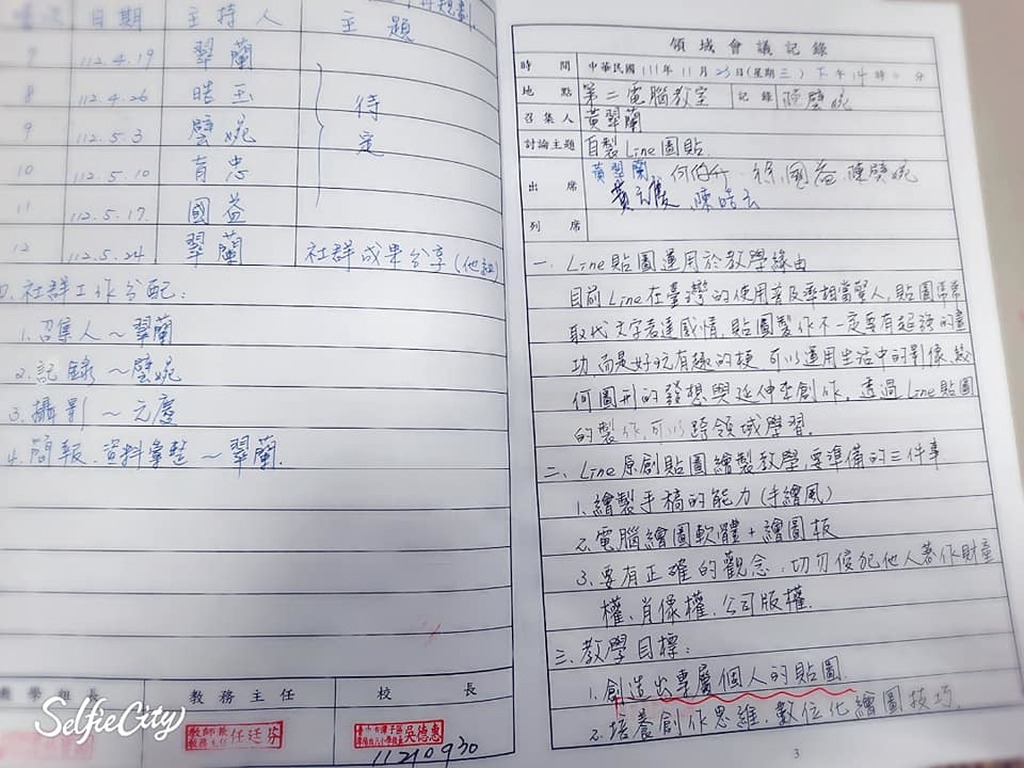 日期 主持人 主題
7 112.4.19 翠蘭
8 112.4.26 皓玉
9 112.5.3 璧婉
待定
10 112.5.10 育忠
11 112.5.17. 國益
12 112.5.24 翠蘭 社群成果分享(他組)
四、社群工作分配:
1.召集人~翠蘭
2.記錄~璧婉
3.攝影~元慶
4.簡報、資料彙整~翠蘭.
學組長 教務主任 校長
教務主任 任廷芬
吳德惠
11210930
SelfieCity
領域會議記錄
時間 中華民國111年11月23日(星期三)下午14時0分
地點 第二電腦教室 記錄 陳璧婉
召集人 黃翠蘭
討論主題 自製Line圖貼.
出席 黃翠蘭 國益 陳璧婉
黃元慶
列席
一、Line貼圖運用於教學緣由
目前Line在臺灣的使用普及率相當驚人,貼圖常常
取代文字表達感情,貼圖製作不一定要有超強的畫
功,而是好玩有趣的梗,可以運用生活中的影像、幾
何圖形的發想與延伸至創作,透過Line貼圖
的製作,可以跨領域學習.
二、Line原創貼圖繪製教學,要準備的三件事
1、繪製手稿的能力(手繪風)
2、電腦繪圖軟體+繪圖板
3、要有正確的觀念,切勿侵犯他人著作財產
權、肖像權、公司版權.
三、教學目標:
1.創造出專屬個人的貼圖.
2.培養創作思維,數位化繪圖技巧.
3